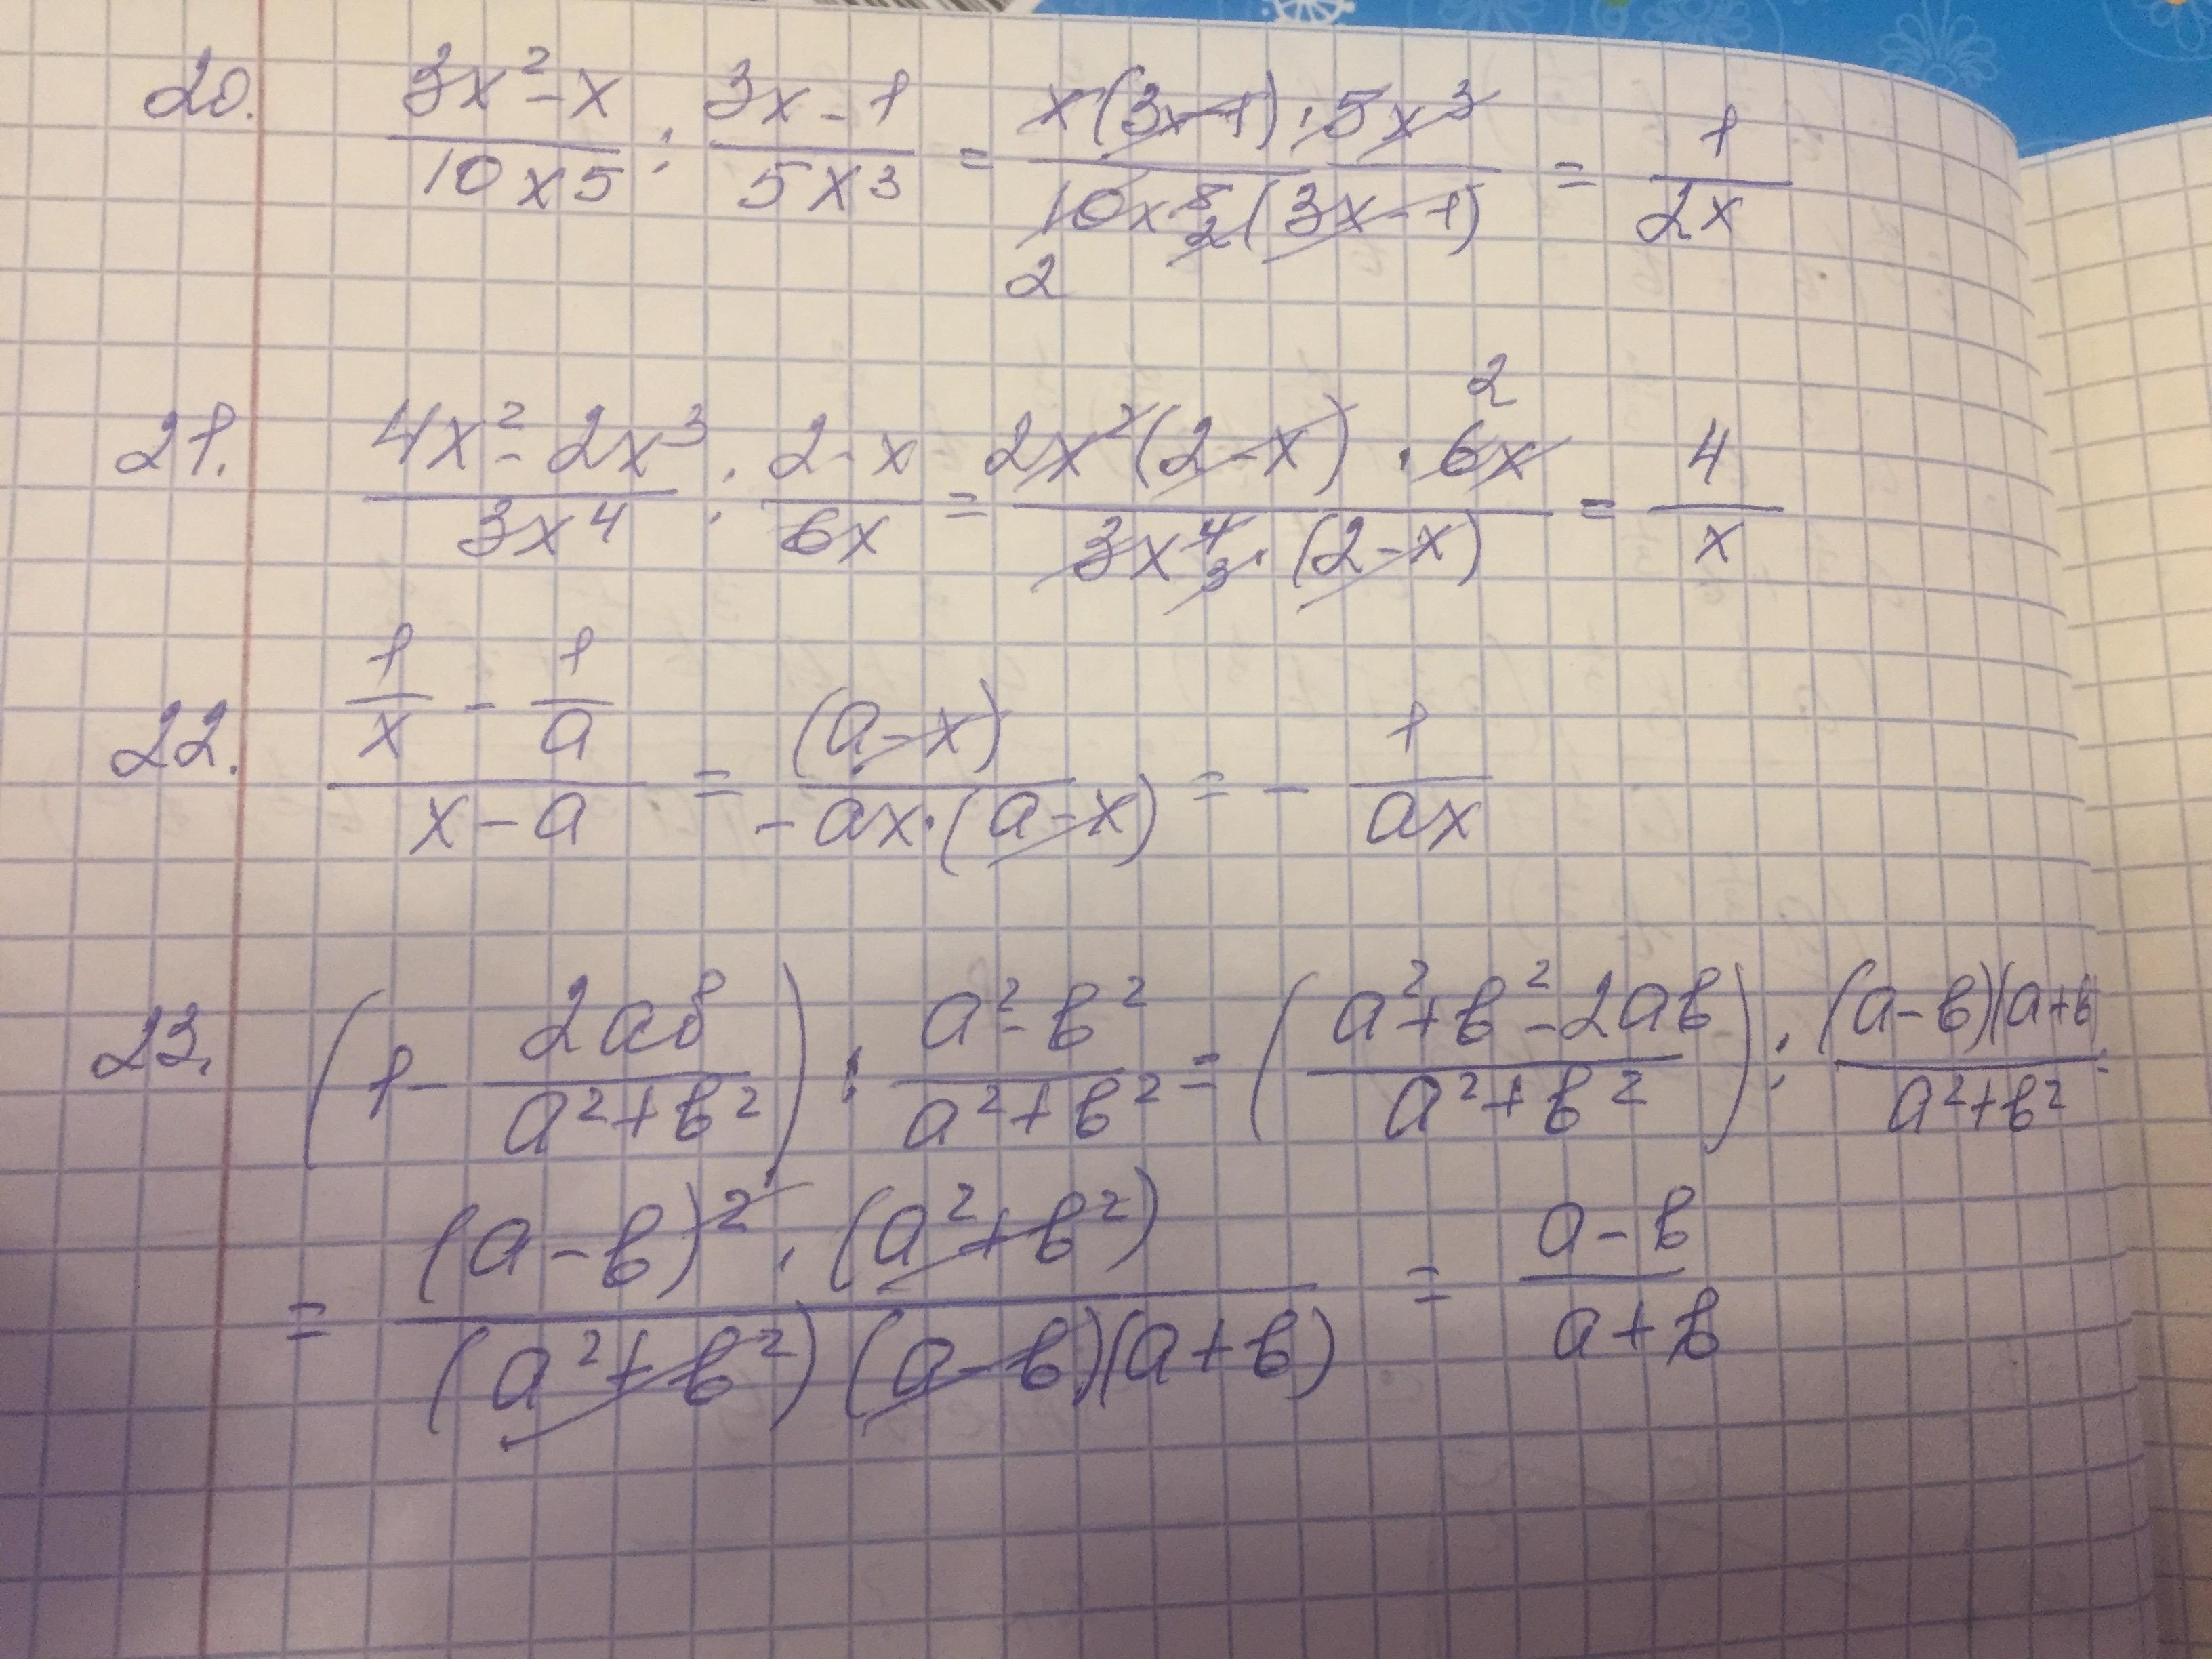 20. (3x²-x)/(10x5) : (3x-1)/(5x3) = (x(3x-1)·5x³)/(10x⁵(3x-1)) = 1/(2x)
2 2
2
21. (4x²-2x³)/(3x⁴) : (2-x)/(6x) = (2x²(2-x)·6x)/(3x⁴·(2-x)) = 4/x
3
22. (1/x - 1/a)/(x-a) = (a-x)/(-ax·(a-x)) = - 1/(ax)
23. (1- 2ab/(a²+b²)) : (a²-b²)/(a²+b²) = ((a²+b²-2ab)/(a²+b²)) : ((a-b)(a+b))/(a²+b²) =
= ((a-b)²·(a²+b²))/((a²+b²)(a-b)(a+b)) = (a-b)/(a+b)